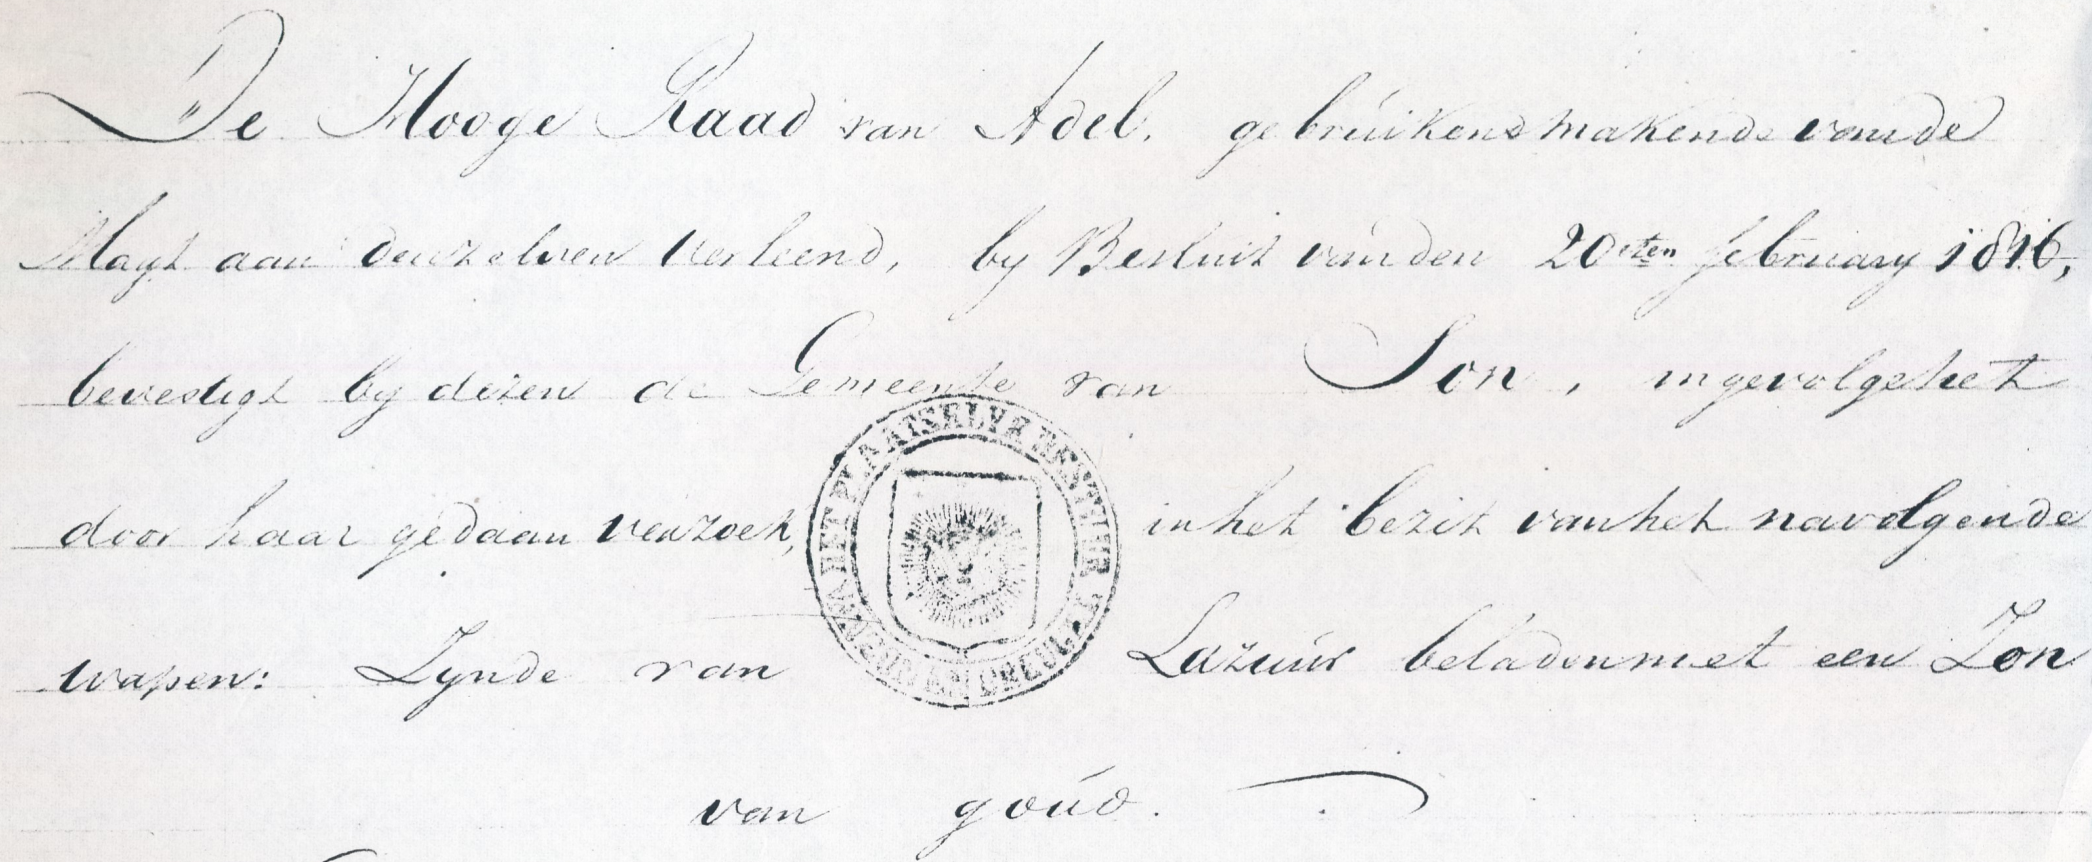 De Hooge Raad van Adel, gebruikend makende van de
Magt aan denzelven verleend, by Besluit van den 20sten february 1816,
bevestigt by dezen de Gemeente van Son, ingevolge het
door haar gedaan verzoek, in het bezit van het navolgende
wapen: Zynde van Lazuur beladen met een Zon
van goud.
PLAATSELYK BESTUUR